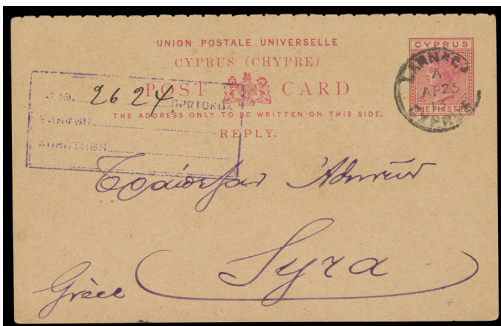 UNION POSTALE UNIVERSELLE
CYPRUS (CHYPRE)
POST CARD
THE ADDRESS ONLY TO BE WRITTEN ON THIS SIDE.
REPLY.
CYPRUS
ONE PIASTRE
LARNACA
A
AP 25
CYPRUS
2624
Τράπεζαν Ἀθηνῶν
Syra
Grèce